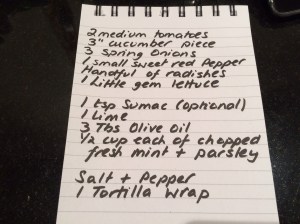 2 medium tomatoes
3" cucumber piece
3 Spring Onions
1 small sweet red Pepper
Handful of radishes
1 Little gem lettuce
1 tsp Sumac (optional)
1 Lime
3 Tbs Olive Oil
1/2 cup each of chopped
fresh mint + parsley
Salt + Pepper
1 Tortilla wrap